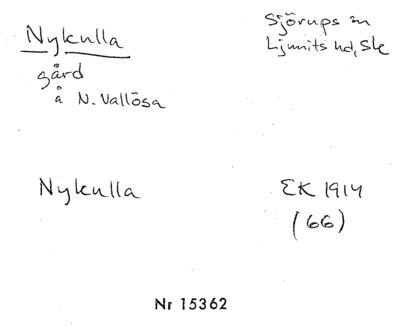 Nykulla
gård
å N. Vallösa
Sjörups sn
Ljunits hd, Sk
Nykulla
EK 1914
(66)
Nr 15362